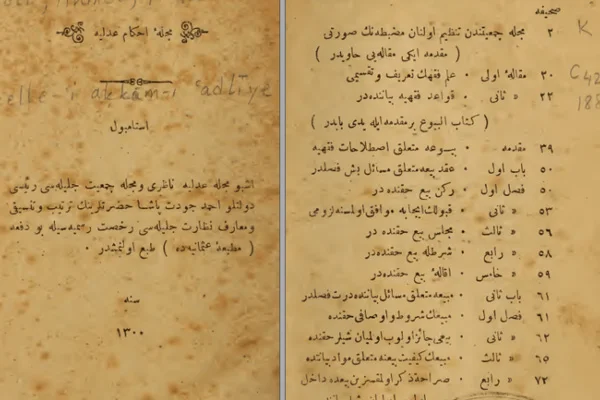 مجلهٔ احكام عدلیه
celle-'i aḥkâm-ı 'adlîye
استانبول
اشبو مجله عدلیه ناظری ومجله جمعیت جلیله‌سی رئیسی
دولتلو احمد جودت پاشا حضرتلرینك ترتیب وتنسیقی
ومعارف نظارت جلیله‌سی رخصت رسمیه‌سیله بو دفعه
( مطبعهٔ عثمانیه‌ده ) طبع اولنمشدر .
سنه
١٣٠٠
صحیفه
٢ مجله جمعیتندن تنظیم اولنان مضبطه‌نك صورتی
( مقدمه ایكی مقاله‌یی حاویدر )
٢٠ مقالهٔ اولی • علم فقهك تعریف وتقسیمی
٢٢ « ثانی • قواعد فقهیه بیاننده‌در
( كتاب البیوع بر مقدمه ایله یدی بابدر )
٣٩ مقدمه • بیوعه متعلق اصطلاحات فقهیه
٥٠ باب اول • عقد بیعه متعلق مسائل بش فصلدر
٥٠ فصل اول • ركن بیع حقنده‌در
٥٣ « ثانی • قبولك ایجابه موافق اولمسنه لزومی
٥٦ « ثالث • مجلس بیع حقنده‌در
٥٨ « رابع • شرطله بیع حقنده‌در
٥٩ « خامس • اقالهٔ بیع حقنده‌در
٦١ باب ثانی • مبیعه متعلق مسائل بیاننده درت فصلدر
٦١ فصل اول • مبیعك شروط و اوصافی حقنده
٦٢ « ثانی • بیعی جائز اولوب اولمیان شیلر حقنده
٦٥ « ثالث • مبیعك كیفیت بیعنه متعلق مواد بیاننده
٧٢ « رابع • صراحة ذكر اولنمقسزین بیعده داخل
K
C42
188